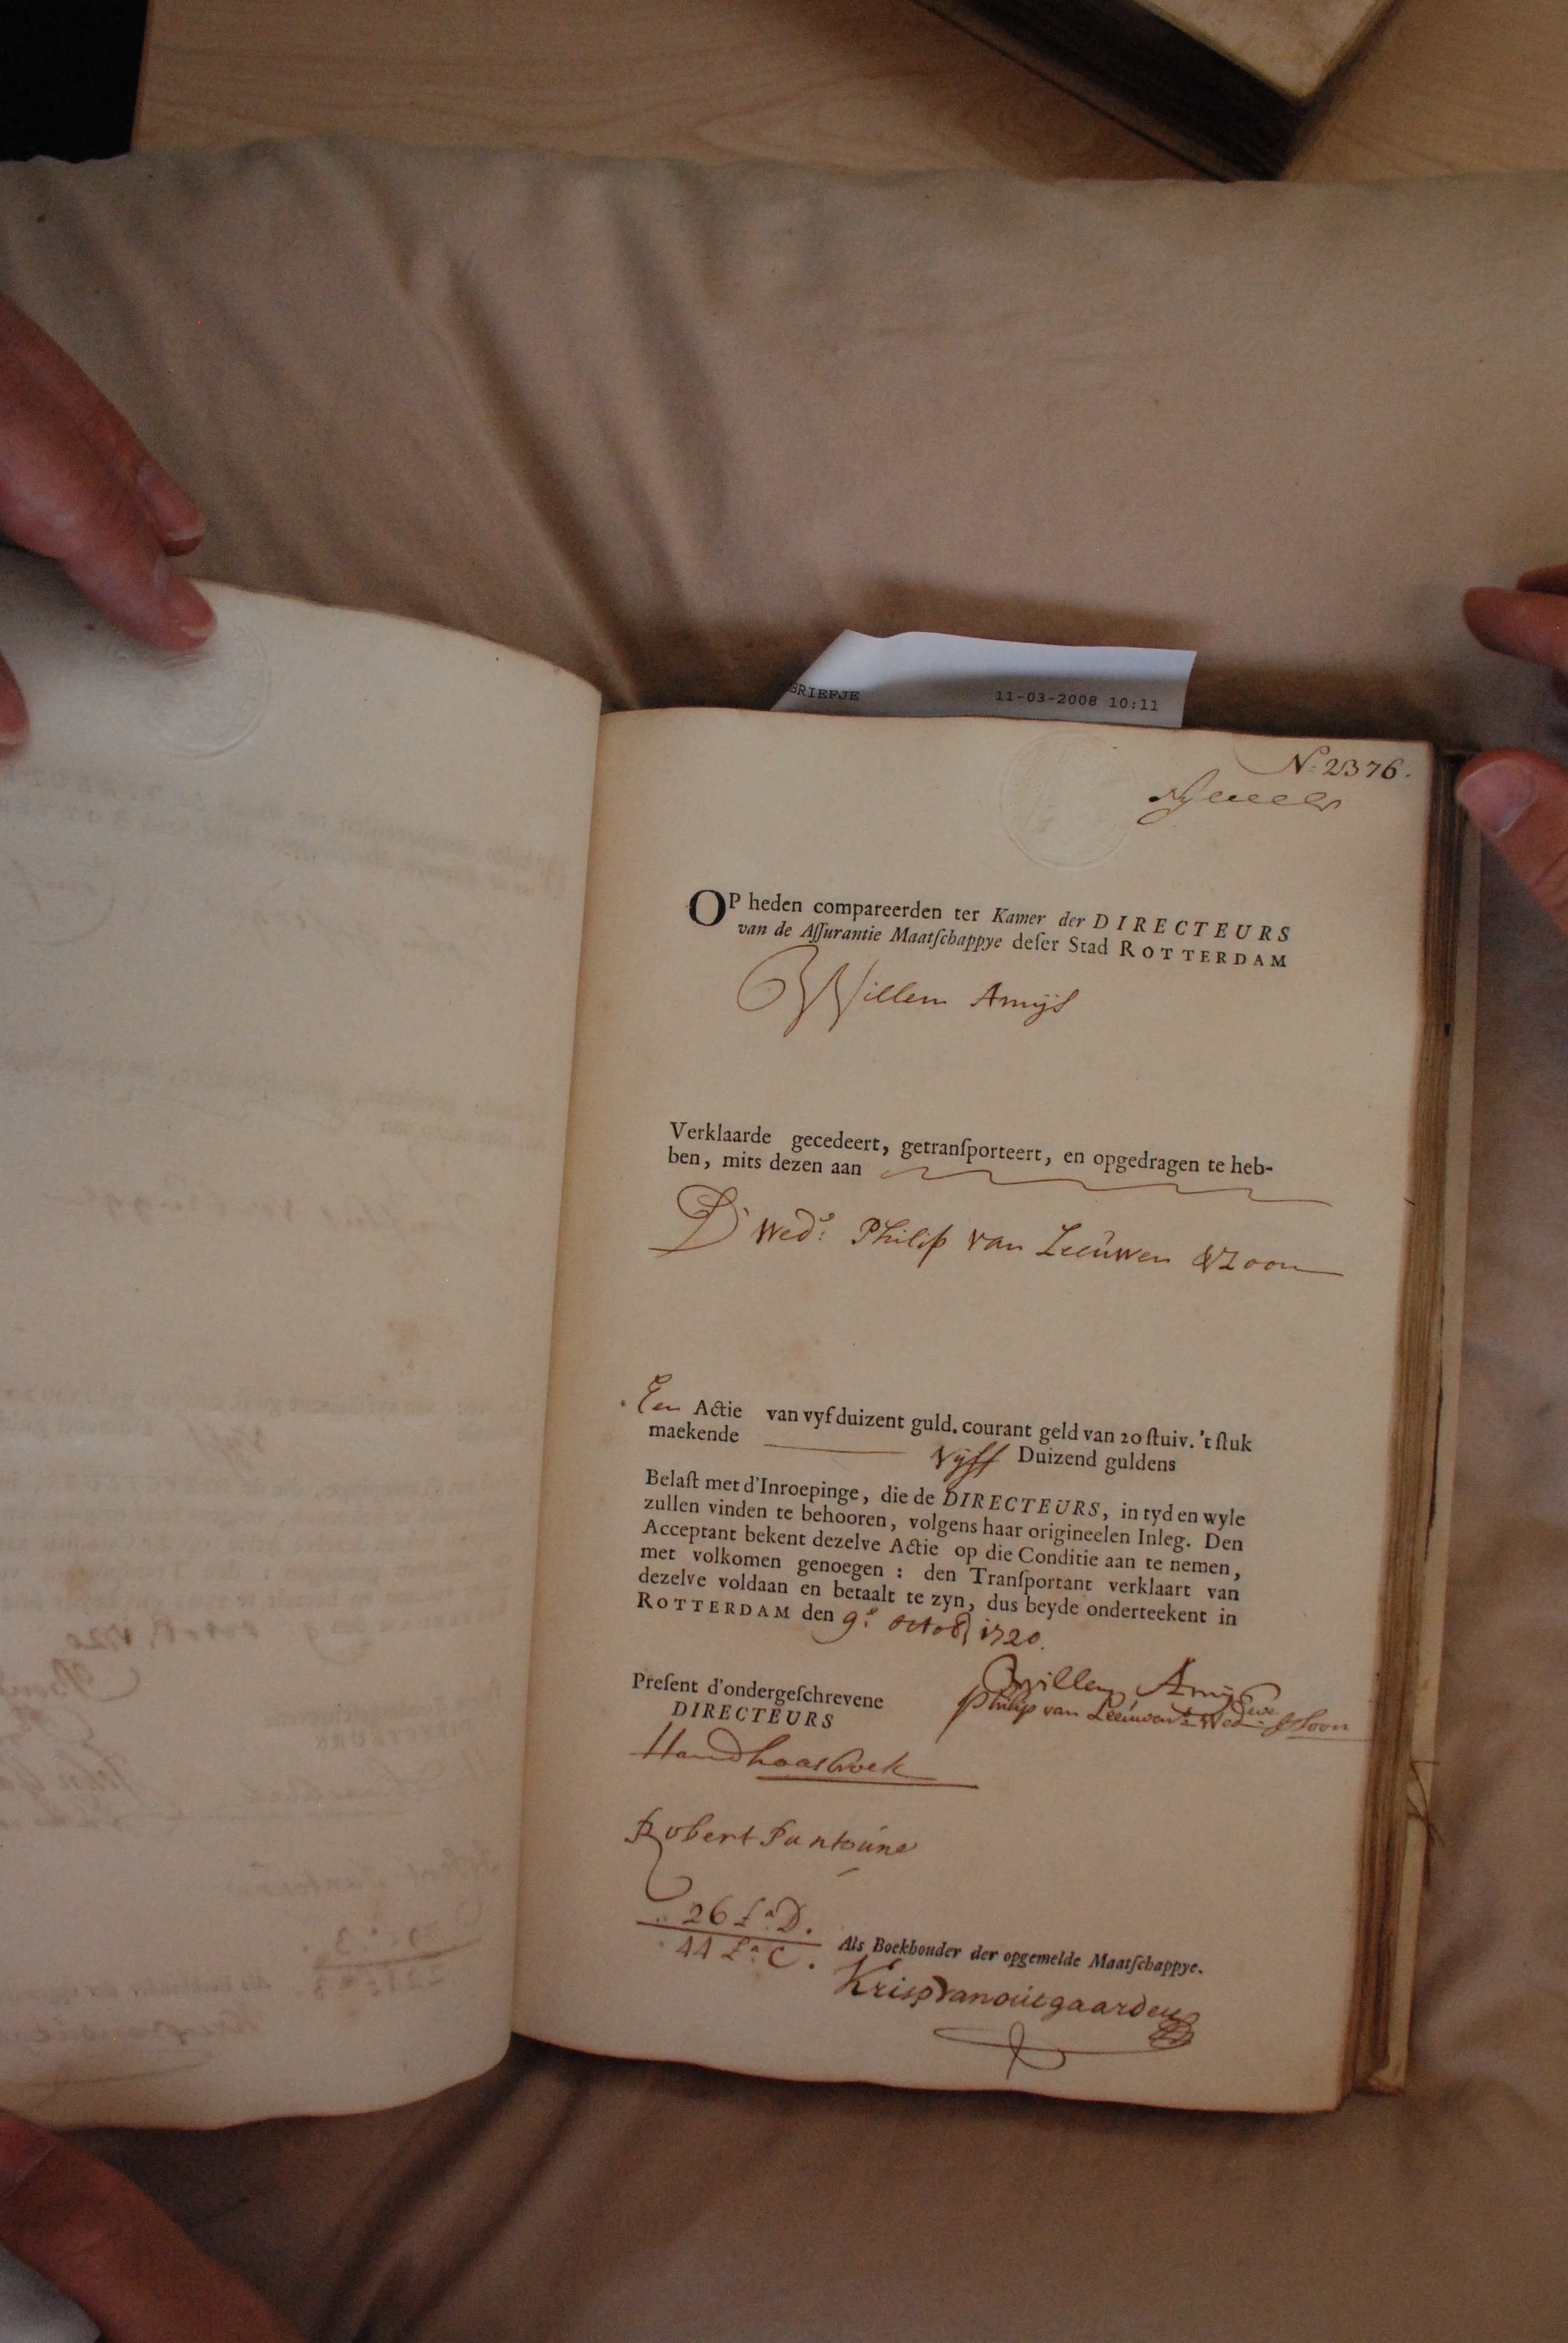 BRIEFJE 11-03-2008 10:11
N:2376.
OP heden compareerden ter Kamer der DIRECTEURS
van de Aſſurantie Maatſchappye deſer Stad ROTTERDAM
Willem Amijs
Verklaarde gecedeert, getranſporteert, en opgedragen te heb-
ben, mits dezen aan
D' Wed.e Philip van Leeuwen & Zoon
Een Actie van vyf duizent guld. courant geld van 20 ſtuiv. 't ſtuk
maekende Vyff Duizend guldens
Belaſt met d'Inroepinge, die de DIRECTEURS, in tyd en wyle
zullen vinden te behooren, volgens haar origineelen Inleg. Den
Acceptant bekent dezelve Actie op die Conditie aan te nemen,
met volkomen genoegen : den Tranſportant verklaart van
dezelve voldaan en betaalt te zyn, dus beyde onderteekent in
ROTTERDAM den 9.e octob 1720.
Willem Amijs
Preſent d'ondergeſchrevene
Philip van Leeuwen Wed.e & Soon
DIRECTEURS
Robert Fantoine
26 L.a D.
44 L.a C.
Als Boekhouder der opgemelde Maatſchappye.